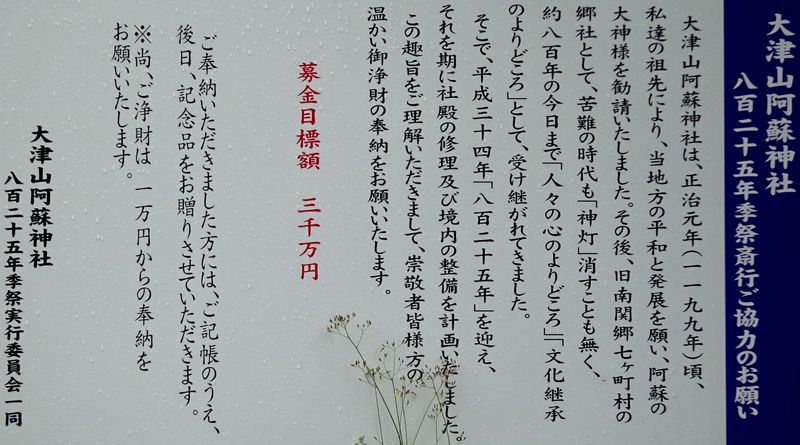 大津山阿蘇神社
八百二十五年季祭斎行ご協力のお願い
大津山阿蘇神社は、正治元年(一一九九年)頃、
私達の祖先により、当地方の平和と発展を願い、阿蘇の
大神様を勧請いたしました。その後、旧南関郷七ヶ町村の
郷社として、苦難の時代も「神灯」消すことも無く、
約八百年の今日まで「人々の心のよりどころ」「文化継承
のよりどころ」として、受け継がれてきました。
そこで、平成三十四年「八百二十五年」を迎え、
それを期に社殿の修理及び境内の整備を計画いたしました。
この趣旨をご理解いただきまして、崇敬者皆様方の
温かい御浄財の奉納をお願いいたします。
募金目標額 三千万円
ご奉納いただきました方には、ご記帳のうえ、
後日、記念品をお贈りさせていただきます。
※尚、ご浄財は 一万円からの奉納を
お願いいたします。
大津山阿蘇神社
八百二十五年季祭実行委員会一同